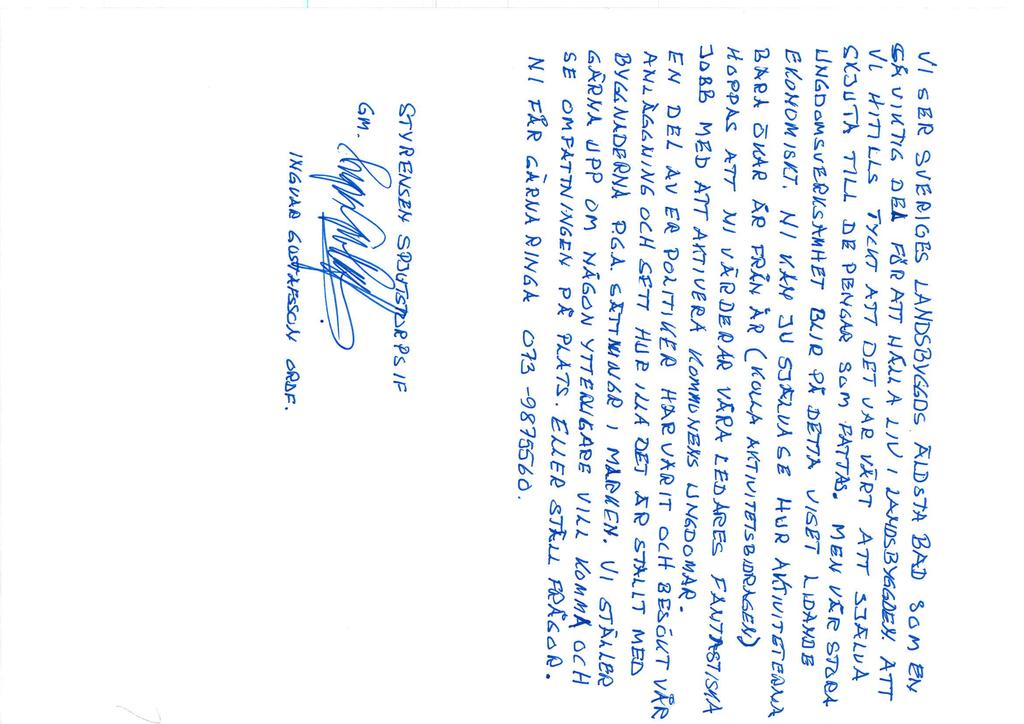 VI SER SVERIGES LANDSBYGGDS ÄLDSTA BAD SOM EN
SÅ VIKTIG DEL FÖR ATT HÅLLA LIV I LANDSBYGGDEN ATT
VI HITILLS TYCKT ATT DET VAR VÄRT ATT SJÄLVA
SKJUTA TILL DE PENGAR SOM FATTAS. MEN VÅR STORA
UNGDOMSVERKSAMHET BLIR PÅ DETTA VISET LIDANDE
EKONOMISKT. NI KAN JU SJÄLVA SE HUR AKTIVITETERNA
BARA ÖKAR ÅR FRÅN ÅR (KOLLA AKTIVITETSBIDRAGEN)
HOPPAS ATT NI VÄRDERAR VÅRA LEDARES FANTASTISKA
JOBB MED ATT AKTIVERA KOMMUNENS UNGDOMAR.
EN DEL AV ER POLITIKER HAR VARIT OCH BESÖKT VÅR
ANLÄGGNING OCH SETT HUR ILLA DET ÄR STÄLLT MED
BYGGNADERNA P.G.A. SÄTTNINGR I MARKEN. VI STÄLLER
GÄRNA UPP OM NÅGON YTTERLIGARE VILL KOMMA OCH
SE OMFATTNINGEN PÅ PLATS. ELLER STÄLL FRÅGOR.
NI FÅR GÄRNA RINGA 073-9875560.
STYRELSEN SPJUTSTORPS IF
GM.
INGVAR GUSTAFSSON ORDF.